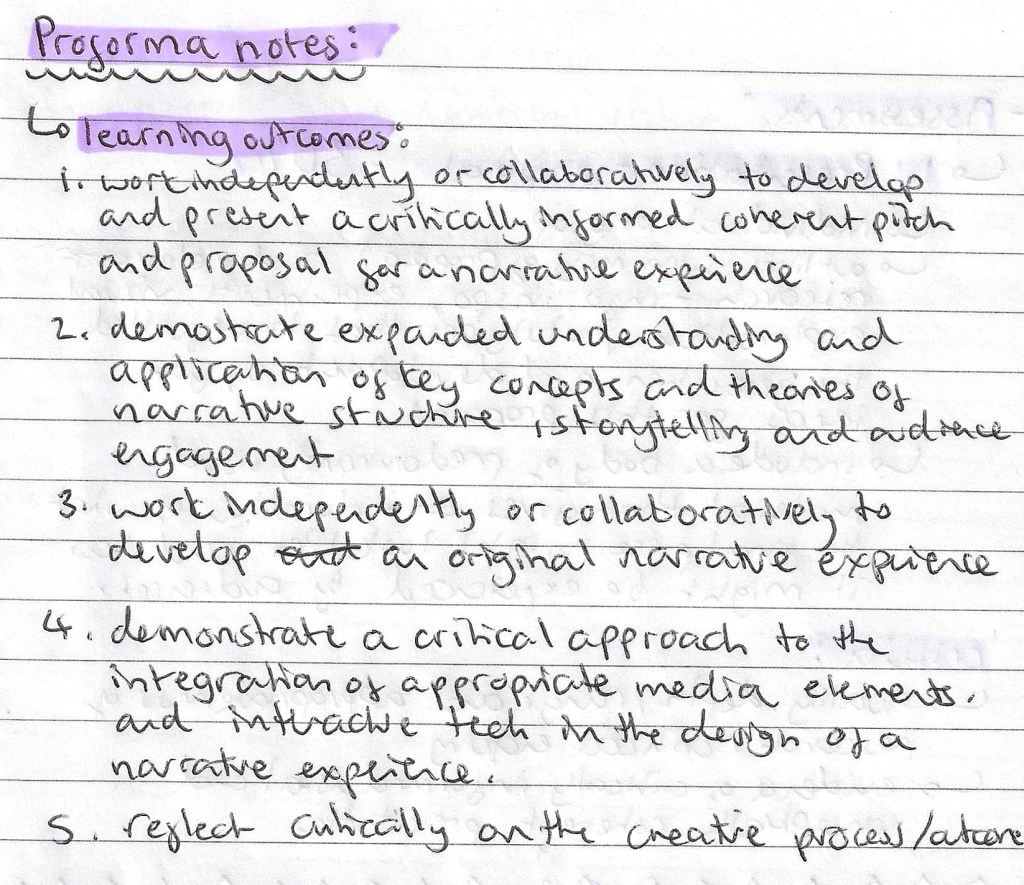 Proforma notes:
↳ learning outcomes:
1. work independently or collaboratively to develop
and present a critically informed coherent pitch
and proposal for a narrative experience
2. demostrate expanded understanding and
application of key concepts and theories of
narrative structure, storytelling and audience
engagement
3. work independently or collaboratively to
develop ~~and~~ an original narrative experience
4. demonstrate a critical approach to the
integration of appropriate media elements.
and interactive tech in the design of a
narrative experience.
5. reflect critically on the creative process/outcome